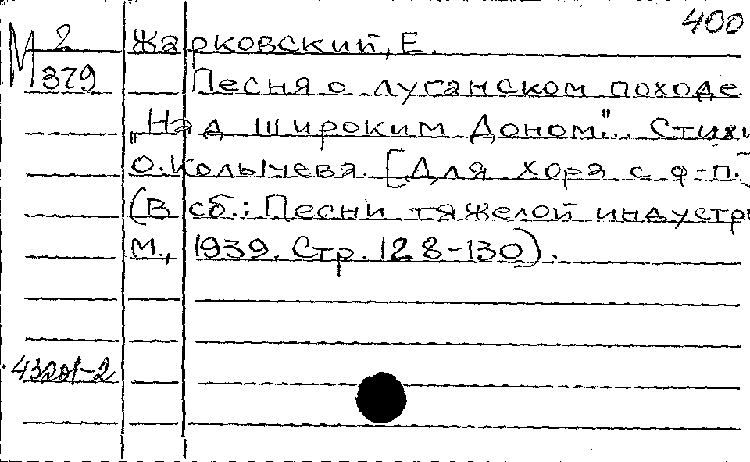 400
М 2 Жарковский, Е.
379 Песня о луганском походе
„Над широким Доном". Стихи
О.Колычева. [Для хора с ф-п.]
(В сб.: Песни тяжелой индустри
М., 1939. Стр. 128-130).